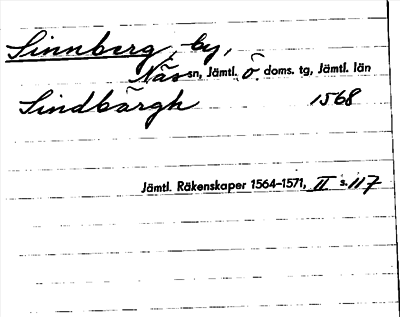 Sinnberg, by,
Näs sn, Jämtl. Ö. doms. tg, Jämtl. län
Sindbärgh 1568
Jämtl. Räkenskaper 1564-1571, II s. 117